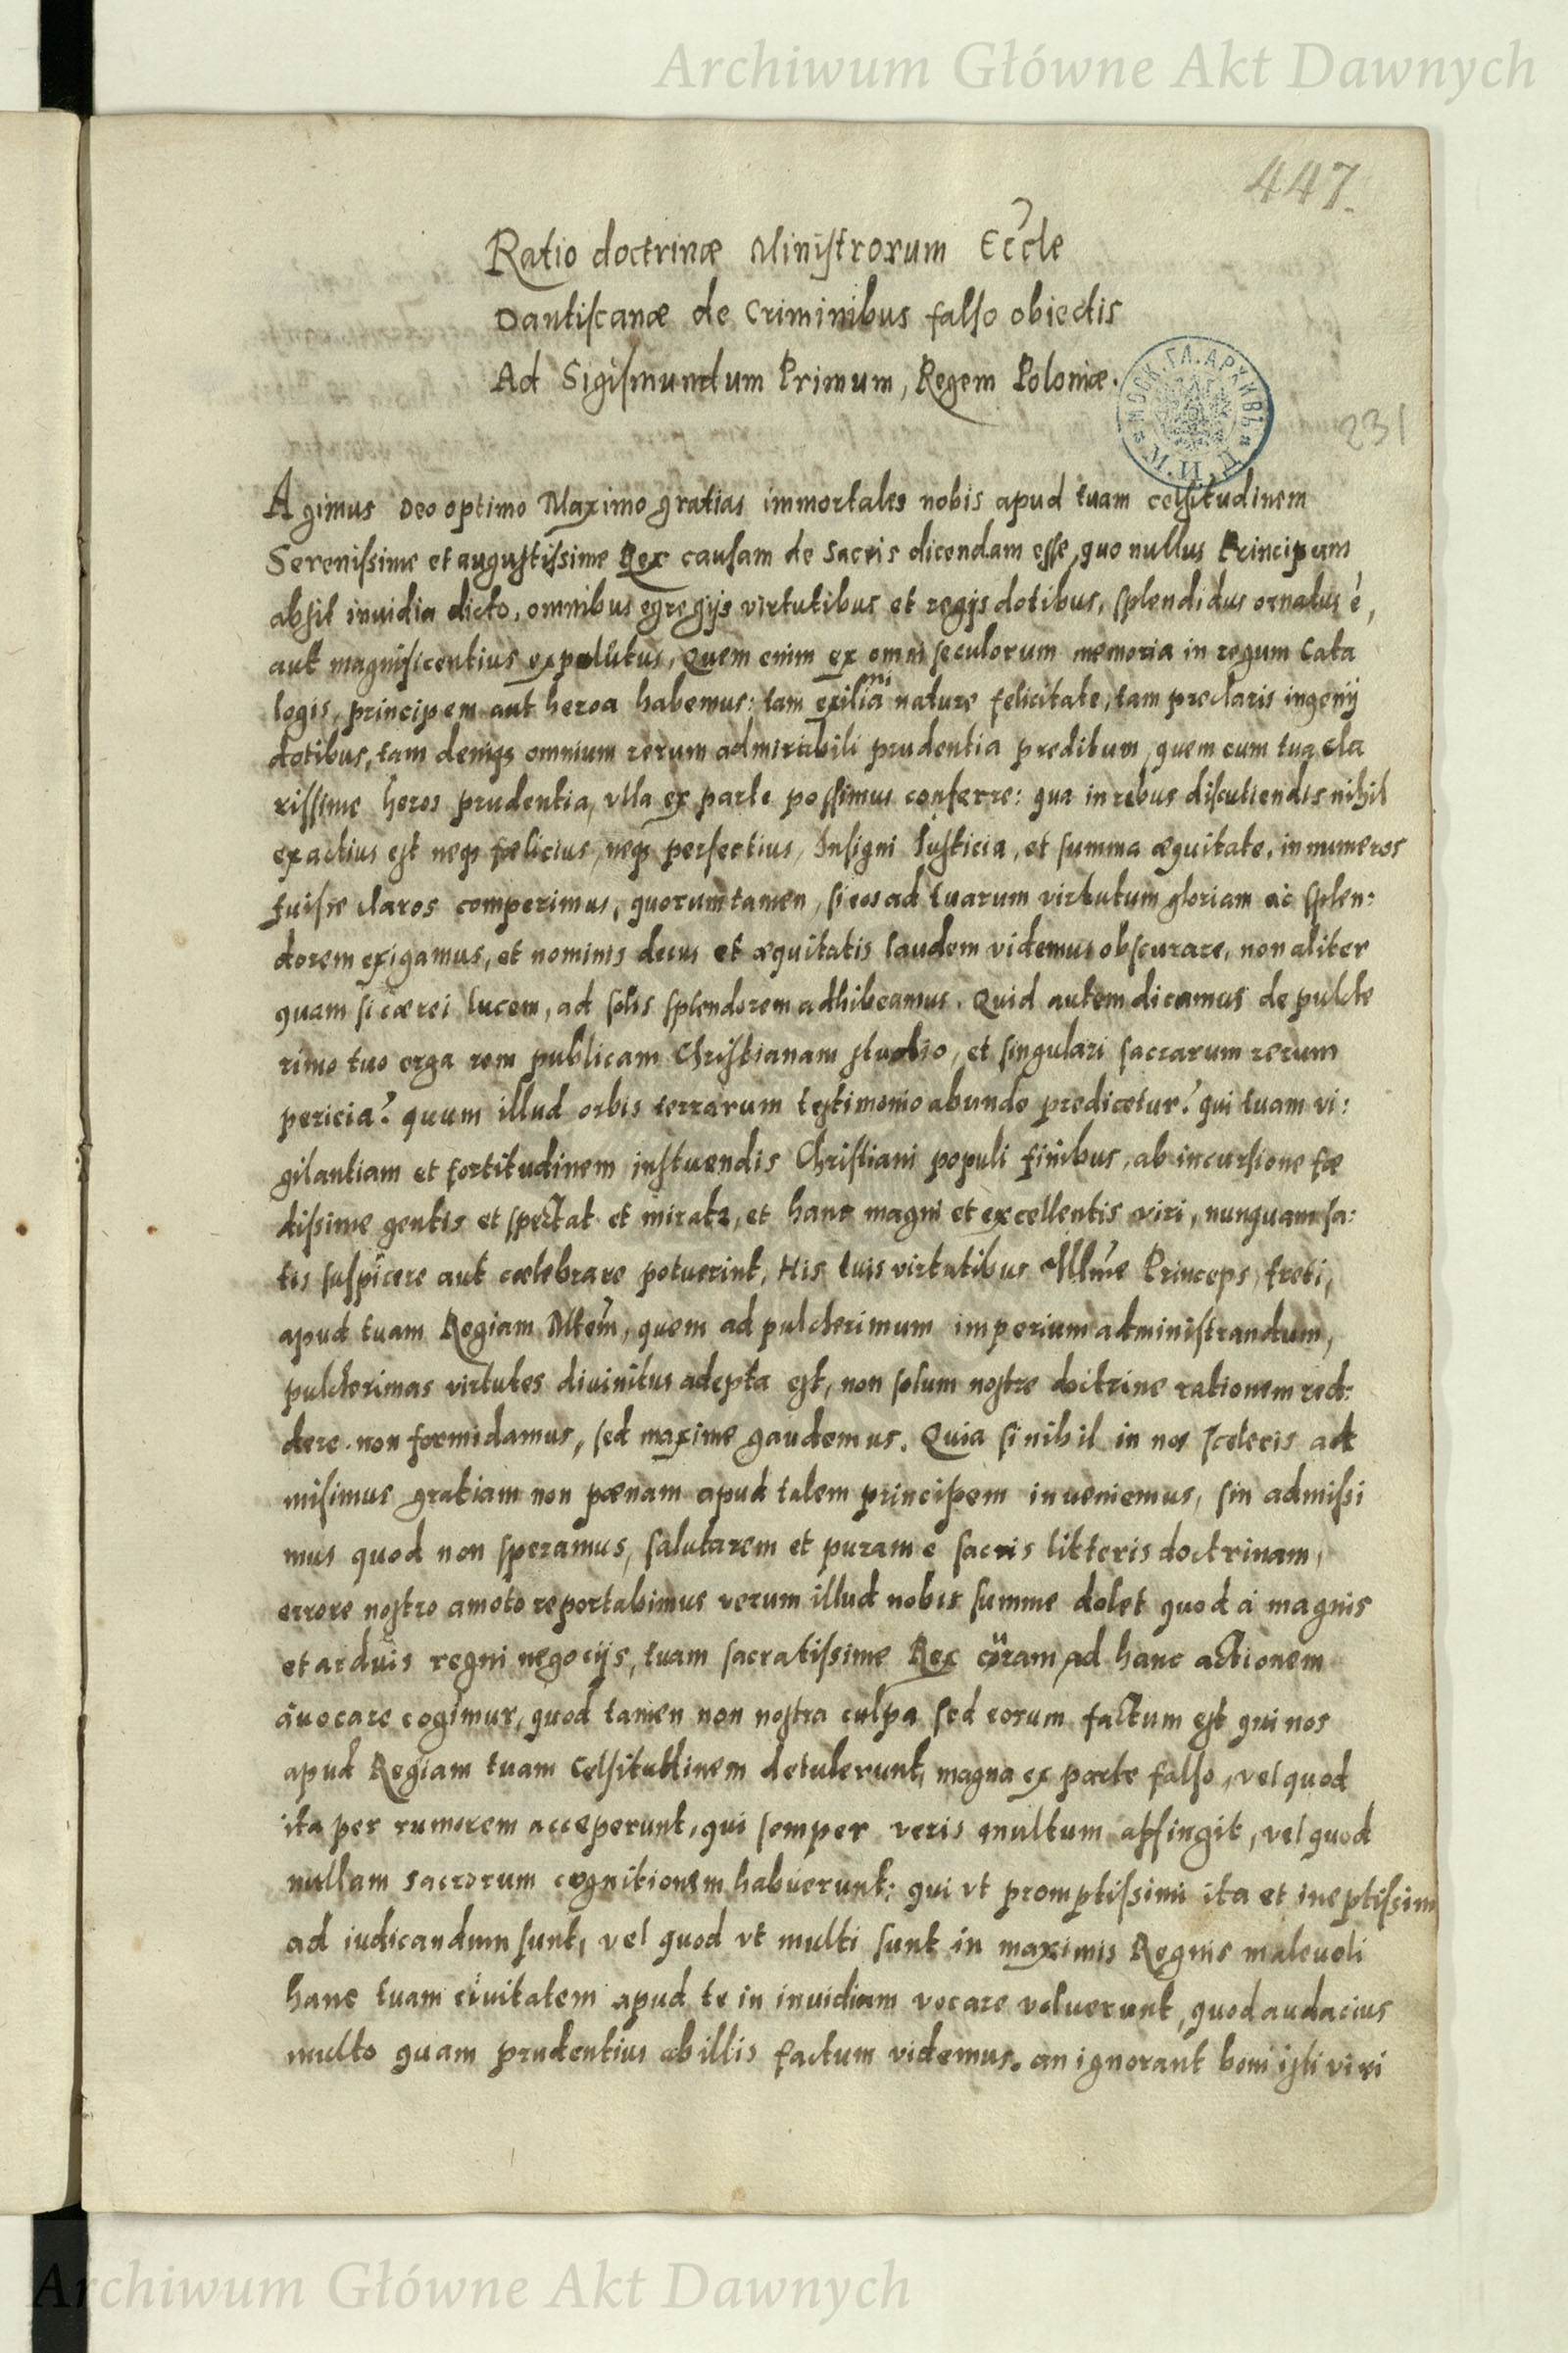 Archiwum Główne Akt Dawnych
447.
Ratio doctrinæ Ministrorum Eccle
Dantiscanæ de Criminibus falso obiectis
Ad Sigismundum Primum, Regem Poloniæ.
МОСК. ГЛ. АРХИВЪ
231
Agimus Deo optimo Maximo gratias immortales nobis apud tuam celsitudinem
Serenissime et augustissime Rex causam de sacris dicendam esse, quo nullus Principum
absit inuidia dicto, omnibus egregijs virtutibus et regijs dotibus, splendidus ornatus è,
aut magnificentius expolitus, Quem enim ex omni seculorum memoria in regum Cata
logis, principem aut heroa habemus: tam nature felicitate, tam preclaris ingenij
dotibus, tam deniqȝ omnium rerum admirabili prudentia preditum, quem cum tua cla
rissime heros prudentia, vlla ex parte possimus conferre: qua in rebus discutiendis nihil
exactius est neqȝ fælicius, neqȝ perfectius, Insigni Iusticia, et summa æquitate, innumeros
fuisse claros comperimus, quorum tamen, si eos ad tuarum virtutum gloriam ac splen:
dorem exigamus, et nominis decus et æquitatis laudem videmus obscurare, non aliter
quam si cærei lucem, ad solis splendorem adhibeamus. Quid autem dicamus de pulche
rimo tuo erga rem publicam Christianam studio, et singulari sacrarum rerum
pericia? quum illud orbis terrarum testimonio abunde predicetur? qui tuam vi:
gilantiam et fortitudinem in stuendis Christiani populi finibus, ab incursione fæ
dissime gentis et spectat et miratr, et hanc magni et excellentis viri, nunquam sa:
tis suspicere aut cælebrare potuerint, His tuis virtutibus Illme Princeps freti,
apud tuam Regiam Mtem, quem ad pulcherimum imperium administrandum,
pulcherimas virtutes diuinitus adepta est, non solum nostre doctrine rationem red:
dere non formidamus, sed maxime gaudemus. Quia si nihil in nos sceleris ad
misimus gratiam non pænam apud talem principem inueniemus, sin admissi
mus quod non speramus, salutarem et puram e sacris litteris doctrinam,
errore nostro amoto reportabimus verum illud nobis summe dolet quod à magnis
et arduis regni negocijs, tuam sacratissime Rex curam ad hanc actionem
auocare cogimur, quod tamen non nostra culpa sed eorum factum est qui nos
apud Regiam tuam Celsitudinem detulerunt, magna ex parte falso, vel quod
ita per rumorem acceperunt, qui semper veris multum affingit, vel quod
nullam sacrorum cognitionem habuerunt: qui vt promptissimi ita et ineptissim
ad iudicandum sunt, vel quod vt multi sunt in maximis Regnis maleuoli
hanc tuam ciuitatem apud te in inuidiam vocare voluerunt, quod audacius
multo quam prudentius ab illis factum videmus. an ignorant boni isti viri
Archiwum Główne Akt Dawnych